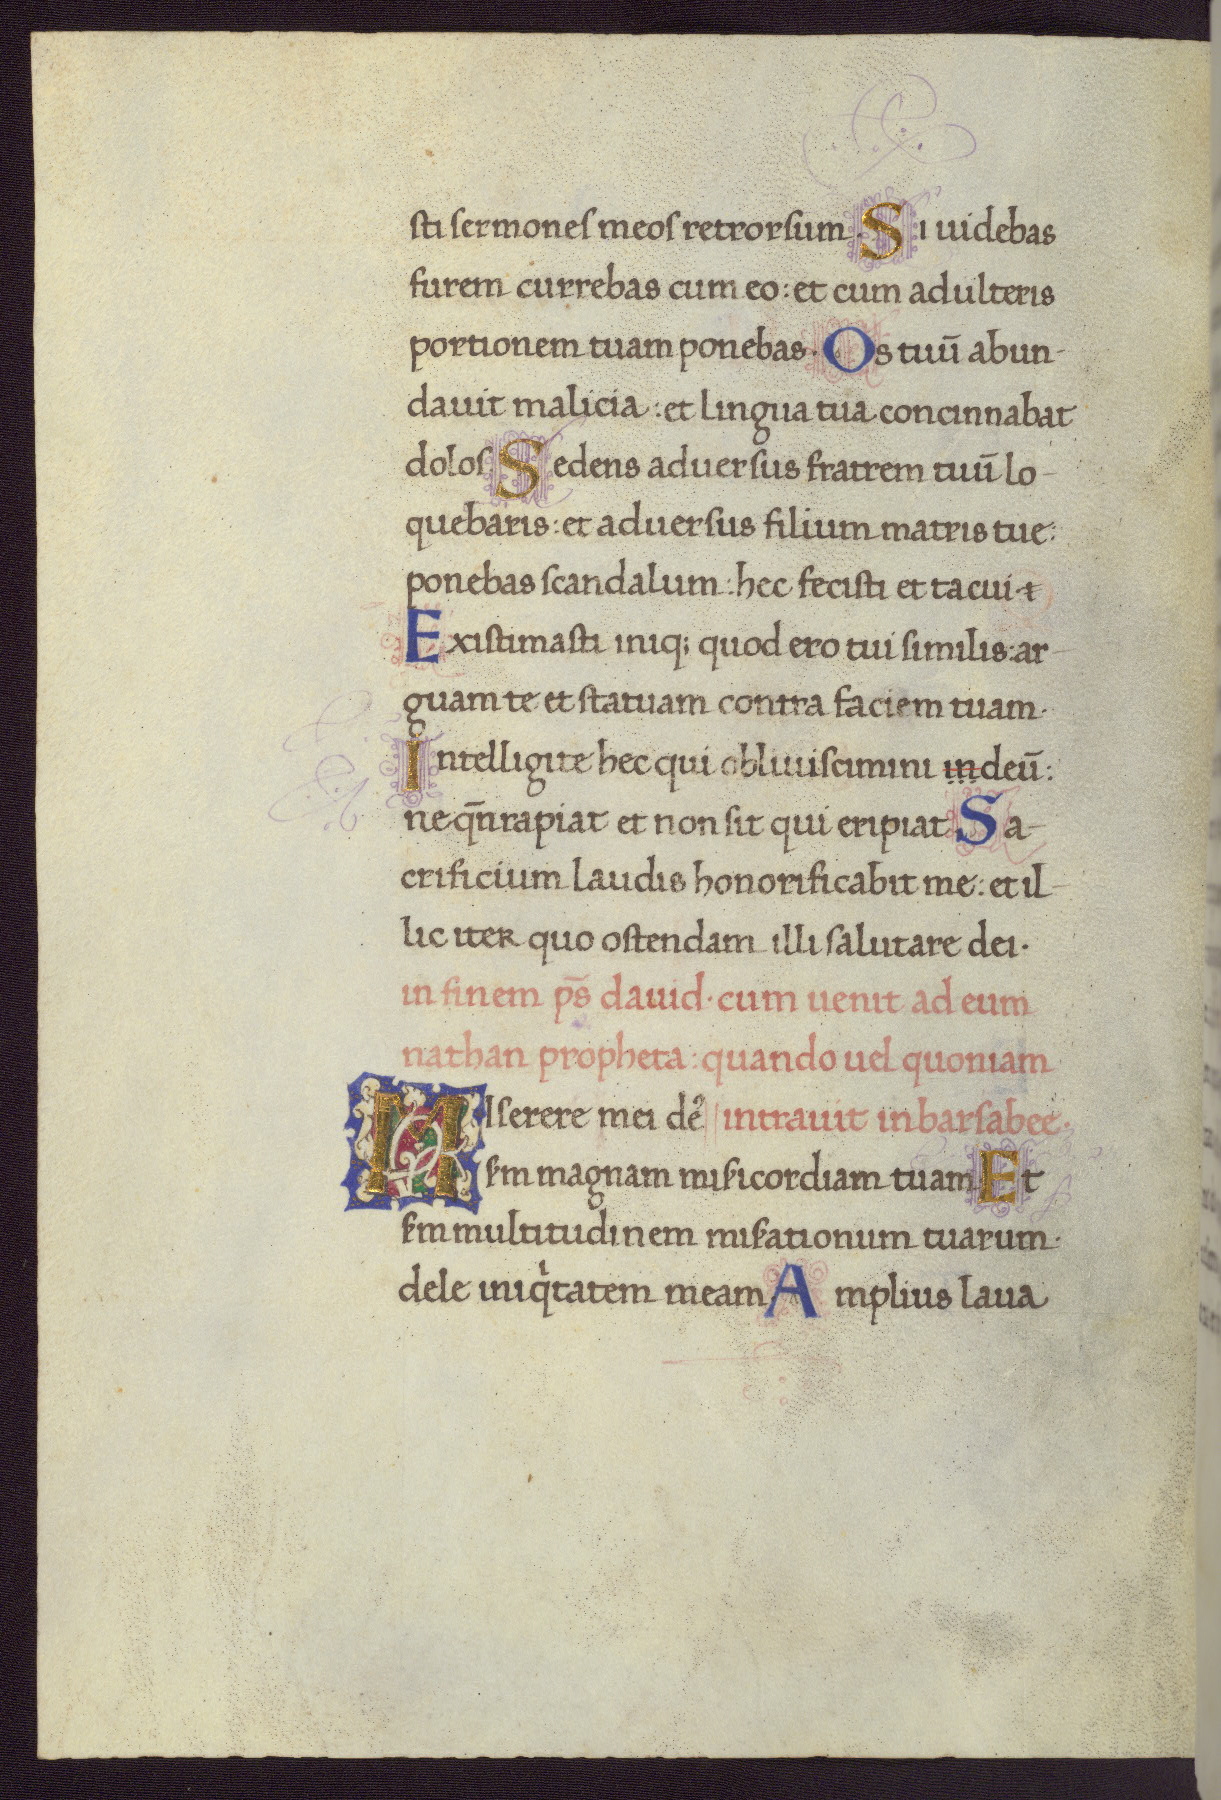 sti sermones meos retrorsum. Si uidebas
furem currebas cum eo: et cum adulteris
portionem tuam ponebas. Os tuū abun-
dauit malicia: et lingua tua concinnabat
dolos. Sedens aduersus fratrem tuū lo-
quebaris: et aduersus filium matris tue:
ponebas scandalum: hec fecisti et tacui
Existimasti iniq; quod ero tui similis: ar-
guam te et statuam contra faciem tuam.
Intelligite hec qui obliuiscimini in deū:
ne qn̄ rapiat et non sit qui eripiat. Sa-
crificium laudis honorificabit me: et il-
lic iter quo ostendam illi salutare dei.
in finem ps̄ dauid. cum uenit ad eum
nathan propheta: quando uel quoniam
MIserere mei de' intrauit in barsabee.
sꝫm magnam misicordiam tuam Et
sꝫm multitudinem misationum tuarum.
dele iniqͥtatem meam. Amplius laua